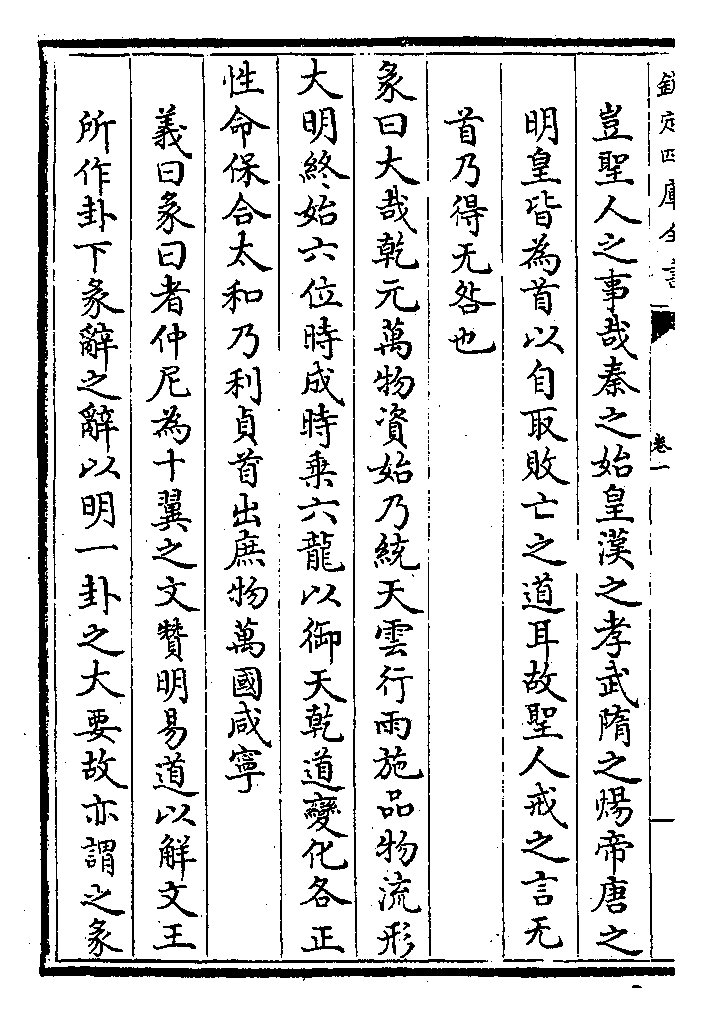 欽定四庫全書
卷一
豈聖人之事哉秦之始皇漢之孝武隋之煬帝唐之
明皇皆為首以自取敗亡之道耳故聖人戒之言无
首乃得无咎也
彖曰大哉乾元萬物資始乃統天雲行雨施品物流形
大明終始六位時成時乘六龍以御天乾道變化各正
性命保合太和乃利貞首出庶物萬國咸寧
義曰彖曰者仲尼為十翼之文贊明易道以解文王
所作卦下彖辭之辭以明一卦之大要故亦謂之彖